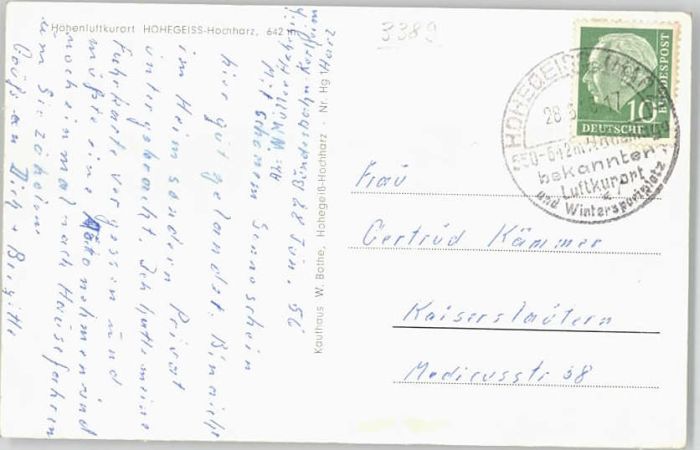 Höhenluftkurort HOHEGEISS-Hochharz, 642 m
3389
Abs. W. Müller
Bundesbahn-Kurheim
Harz
28 Jün. 56
Mit schönem Sonnschein
hier gut gelandet. Bin nicht
im Heim sondern Privat
untergebracht. Ich hatte meine
Fahrkarte vergessen und
müßte eine nehmen und
noch einmal nach Hause fahren
um Sie zu holen.
Grüß an Dich + Brigitte
Kaufhaus W. Bothe, Hohegeiß-Hochharz · Nr. Hg 1
HOHEGEISS
28.6.
bekannter
Luftkurort
und Wintersportplatz
DEUTSCHE
BUNDESPOST
10
Frau
Gertrüd Kämmer
Kaiserslaütern
Medicusstr 38